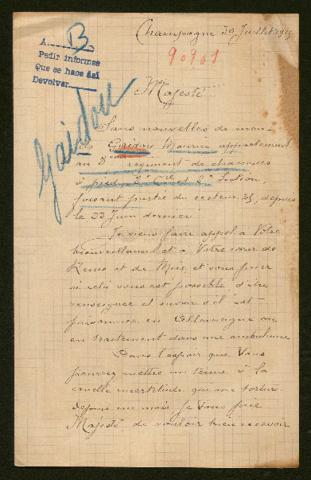 Champagne 29 Juillet 1915
90901
A B
Pedir informes
Que se hace así
Devolver
Gaidon
Majesté
Sans nouvelles de mon
fils Gaidon Maurice appartenant
au 8e régiment de chasseurs
à pied, 2e Cie, 2e Section,
faisant partie du secteur 35, depuis
le 23 Juin dernier
Je viens faire appel à Votre
bienveillance et à Votre cœur de
Reine et de Mère et vous prier
si cela vous est possible d'être
renseignée et savoir s'il est
prisonnier en Allemagne ou
en traitement dans une ambulance
Dans l'espoir que Vous
pourrez mettre un terme à la
cruelle incertitude qui me torture
depuis un mois, je Vous prie
Majesté de vouloir bien recevoir